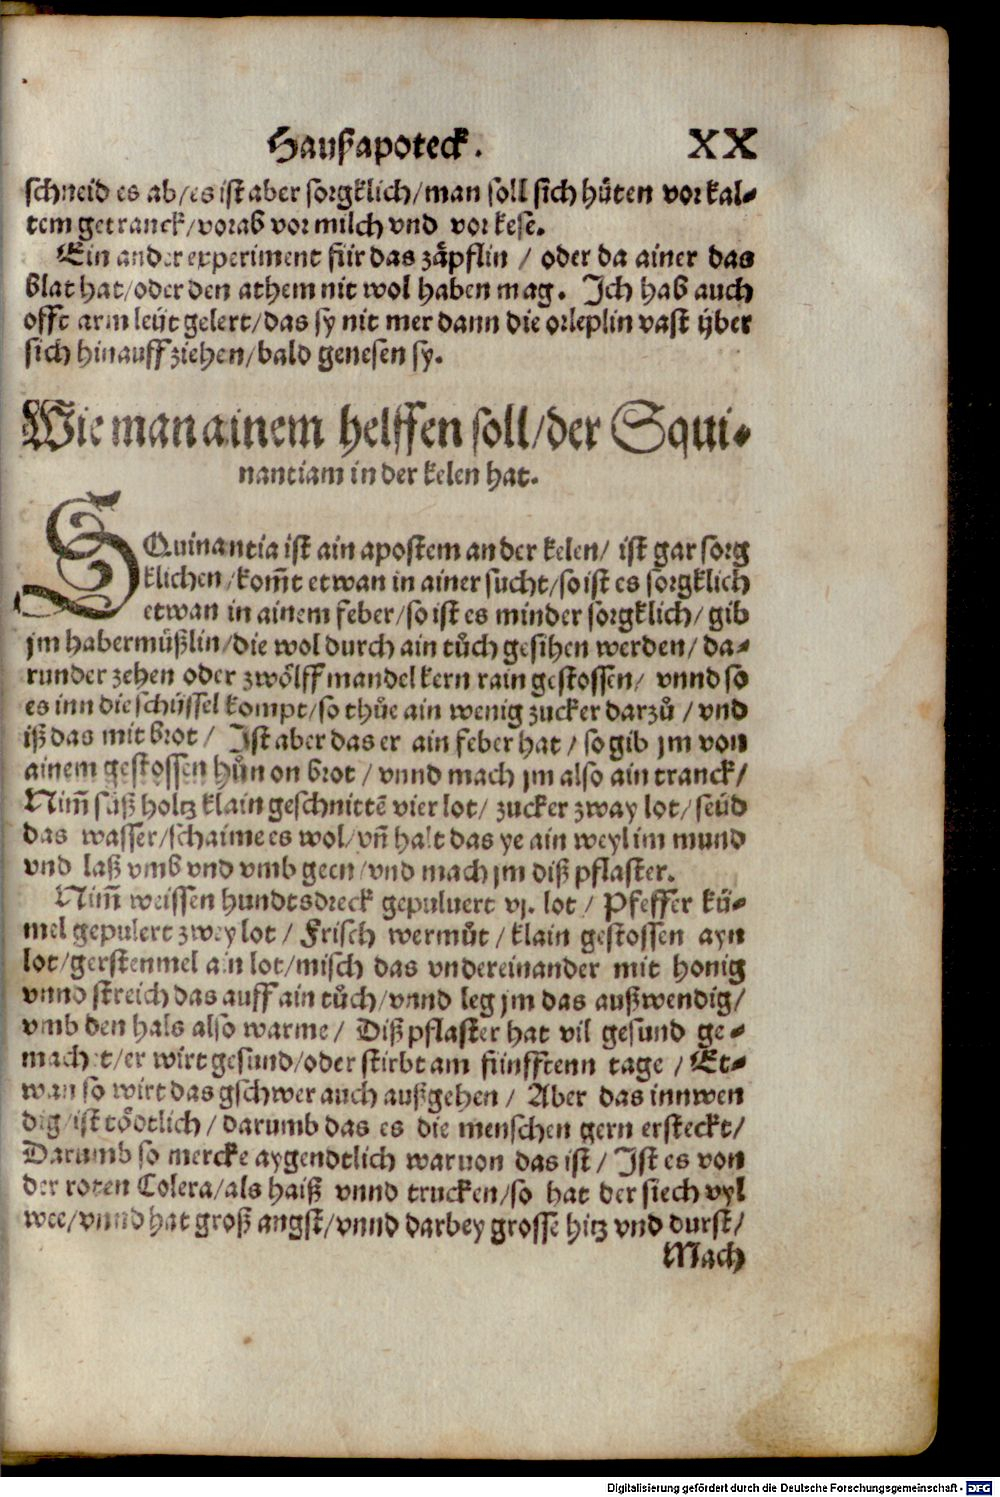 Haußapoteck. XX
schneid es ab/es ist aber sorgklich/man soll sich hüten vor kal-
tem getranck/vorab vor milch vnd vor kese.
Ein ander experiment für das zäpflin / oder da ainer das
blat hat/oder den athem nit wol haben mag. Ich hab auch
offt arm leüt gelert/das sy nit mer dann die orleplin vast über
sich hinauff ziehen/bald genesen sy.
Wie man ainem helffen soll/der Squi-
nantiam in der kelen hat.
SQuinantia ist ain apostem an der kelen/ ist gar sorg
klichen/kom̃t etwan in ainer sucht/so ist es sorgklich
etwan in ainem feber/so ist es minder sorgklich/ gib
jm habermüßlin/die wol durch ain tůch gesihen werden/ da-
runder zehen oder zwölff mandel kern rain gestossen/ vnnd so
es inn die schüssel kompt/so thůe ain wenig zucker darzů / vnd
iß das mit brot / Ist aber das er ain feber hat / so gib jm von
ainem gestossen hůn on brot / vnnd mach jm also ain tranck/
Nim̃ süß holtz klain geschnittẽ vier lot/ zucker zway lot/ seüd
das wasser/schaime es wol/vñ halt das ye ain weyl im mund
vnd laß vmb vnd vmb geen/vnd mach jm diß pflaster.
Nim̃ weissen hundtsdreck gepuluert vj. lot / Pfeffer kü-
mel gepulert zwey lot / Frisch wermůt / klain gestossen ayn
lot/gerstenmel ain lot/misch das vndereinander mit honig
vnnd streich das auff ain tůch/vnnd leg jm das außwendig/
vmb den hals also warme / Diß pflaster hat vil gesund ge-
machet/er wirt gesund/oder stirbt am fünfftenn tage / Et-
wan so wirt das gschwer auch außgehen / Aber das innwen
dig/ist töotlich / darumb das es die menschen gern ersteckt/
Darumb so mercke aygendtlich waruon das ist / Ist es von
der roten Colera/als haiß vnnd trucken/so hat der siech vyl
wee/vnnd hat groß angst/vnnd darbey grosse hitz vnd durst/
Mach
Digitalisierung gefördert durch die Deutsche Forschungsgemeinschaft - DFG